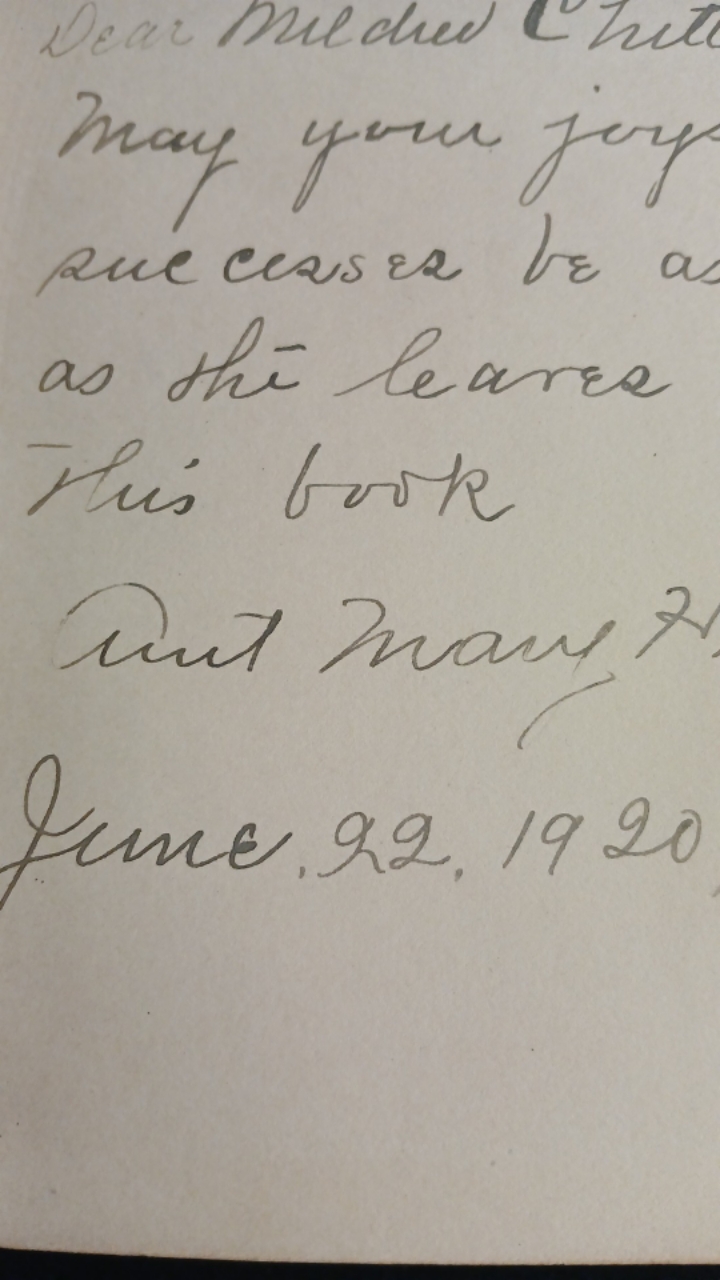 Dear Mildred
May your joys
successes be as
as the leaves
This book
Aunt Mary H.
June. 22. 1920,